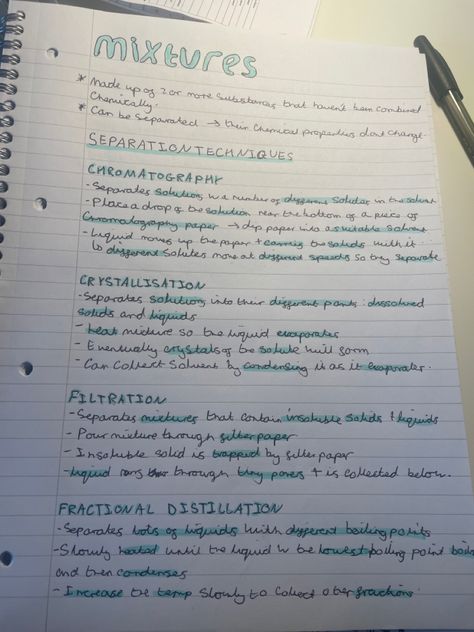 mixtures
* Made up of 2 or more substances that haven't been combined
chemically.
* Can be separated → their chemical properties dont change.
SEPARATION TECHNIQUES
CHROMATOGRAPHY
- Separates solutions w a number of different solutes in the solvent
- Place a drop of the solution near the bottom of a piece of
chromatography paper → dip paper into a suitable solvent
- Liquid moves up the paper + carries the solids with it.
↳ different solutes move at different speeds so they separate
CRYSTALLISATION
- Separates solutions into their different parts: dissolved
solids and liquids
- heat mixture so the liquid evaporates
- Eventually crystals of the solute will form
- Can collect solvent by condensing it as it evaporates.
FILTRATION
- Separates mixtures that contain insoluble solids + liquids
- Pour mixture through filter paper
- Insoluble solid is trapped by filter paper
- liquid runs through tiny pores + is collected below.
FRACTIONAL DISTILLATION
- Separates lots of liquids with different boiling points
- Slowly heated until the liquid w the lowest boiling point boils
and then condenses
- Increase the temp slowly to collect other fractions.